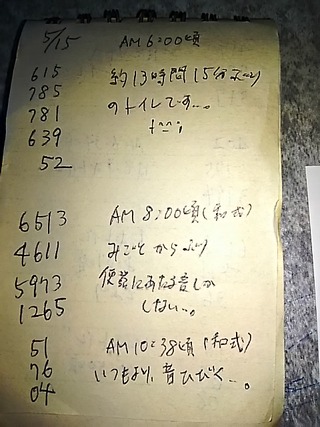 5/15 AM 6:00頃
615 約13時間15分ぶり
785 のトイレです…。
781 t^^;
639
52
6513 AM 8:00頃(和式)
4611 みごとからぶり
5973 便器にあたる音しか
1265 しない…。
51 AM 10:38頃(和式)
76 いつもより、音ひびく…。
04